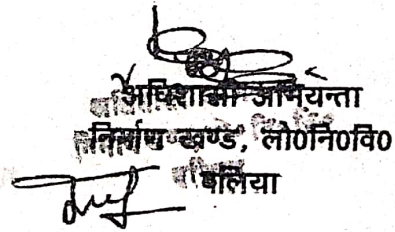 अधिशासी अभियन्ता
निर्माण खण्ड, लो०नि०वि०
बलिया